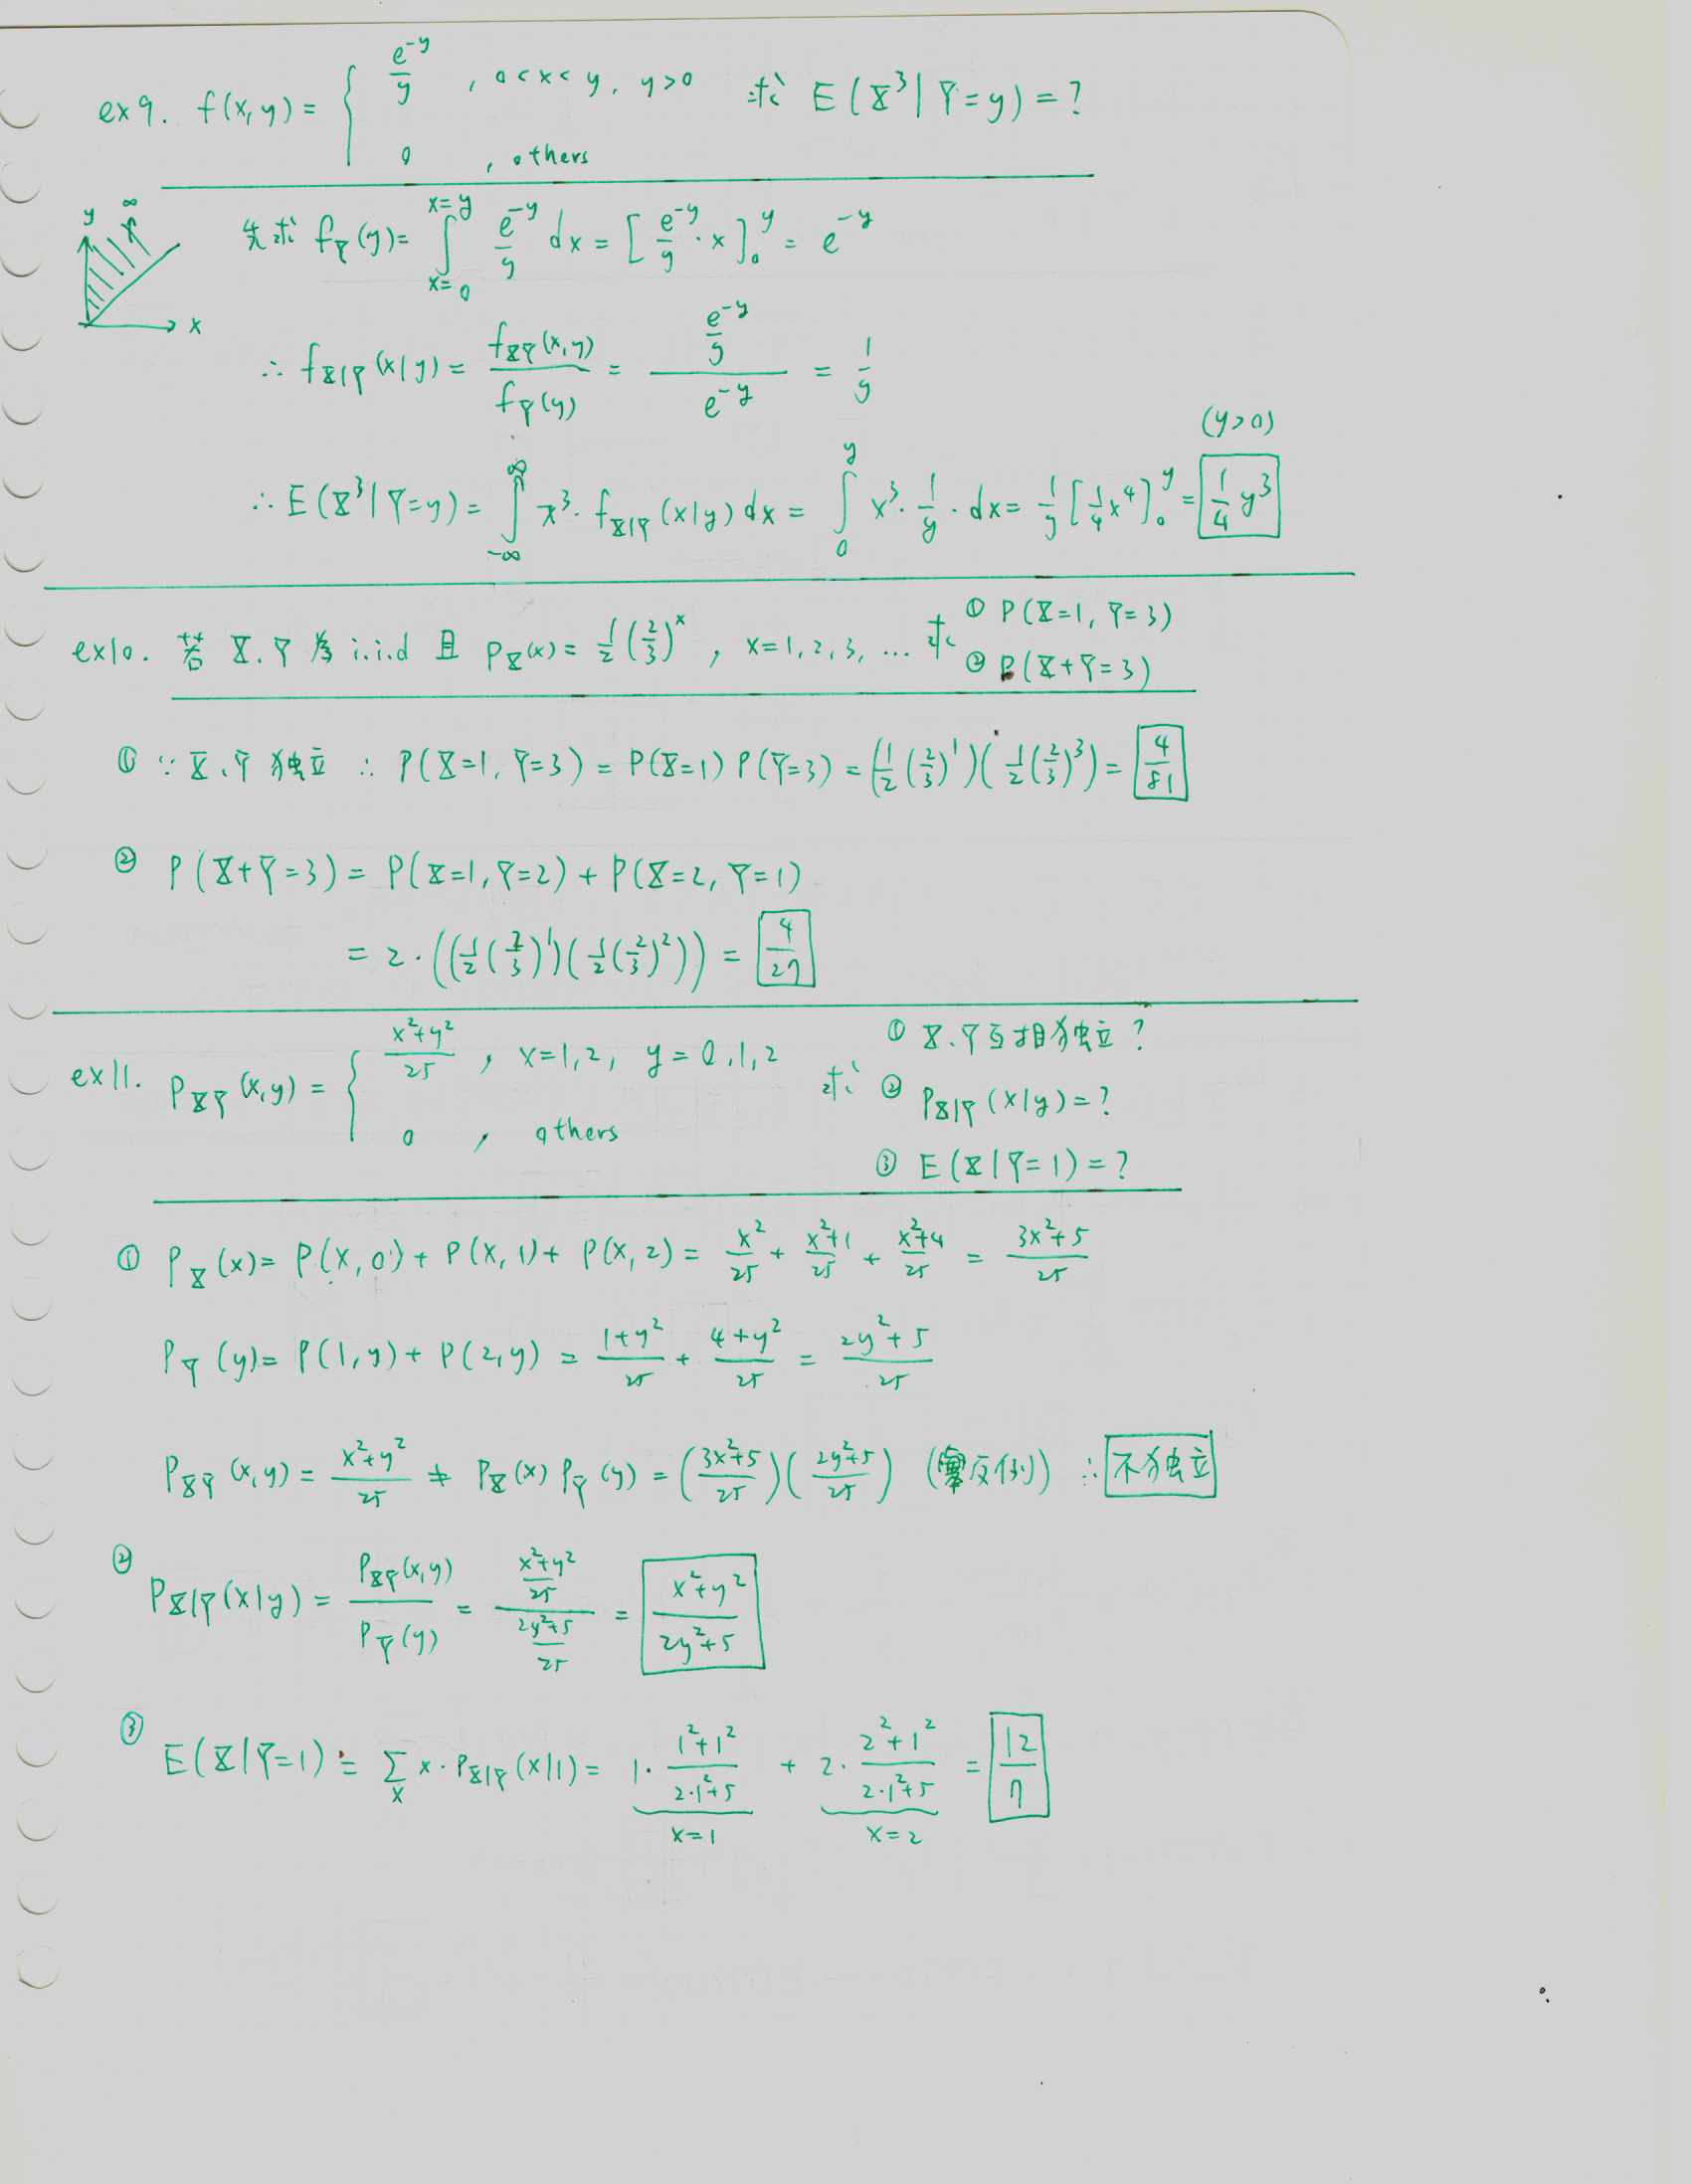 ex9. f(x,y) = { e^{-y}/y , 0<x<y, y>0 求 E(X³|Y=y) = ?
0 , others
y ∞ x
先求 f_Y(y) = ∫_{x=0}^{x=y} e^{-y}/y dx = [e^{-y}/y · x]_0^y = e^{-y}
∴ f_{X|Y}(x|y) = f_{XY}(x,y) / f_Y(y) = (e^{-y}/y) / e^{-y} = 1/y
(y>0)
∴ E(X³|Y=y) = ∫_{-∞}^{∞} x³· f_{X|Y}(x|y) dx = ∫_0^y x³· 1/y · dx = 1/y [1/4 x⁴]_0^y = 1/4 y³
ex10. 若 X.Y 為 i.i.d 且 P_X(x) = 1/2 (2/3)^x , x=1,2,3, … 求 ① P(X=1, Y=3)
② P(X+Y=3)
① ∵ X.Y 独立 ∴ P(X=1, Y=3) = P(X=1) P(Y=3) = (1/2 (2/3)¹)(1/2 (2/3)³) = 4/81
② P(X+Y=3) = P(X=1, Y=2) + P(X=2, Y=1)
= 2·((1/2 (2/3)¹)(1/2 (2/3)²)) = 4/27
ex11. P_{XY}(x,y) = { (x²+y²)/25 , x=1,2, y=0,1,2 求 ① X.Y互相独立?
0 , others ② P_{X|Y}(x|y) = ?
③ E(X|Y=1) = ?
① P_X(x) = P(x,0) + P(x,1) + P(x,2) = x²/25 + (x²+1)/25 + (x²+4)/25 = (3x²+5)/25
P_Y(y) = P(1,y) + P(2,y) = (1+y²)/25 + (4+y²)/25 = (2y²+5)/25
P_{XY}(x,y) = (x²+y²)/25 ≠ P_X(x) P_Y(y) = ((3x²+5)/25)((2y²+5)/25) (反例) ∴ 不独立
② P_{X|Y}(x|y) = P_{XY}(x,y) / P_Y(y) = ((x²+y²)/25) / ((2y²+5)/25) = (x²+y²)/(2y²+5)
③ E(X|Y=1) = Σ_x x·P_{X|Y}(x|1) = 1· (1²+1²)/(2·1²+5) + 2· (2²+1²)/(2·1²+5) = 12/7
x=1 x=2